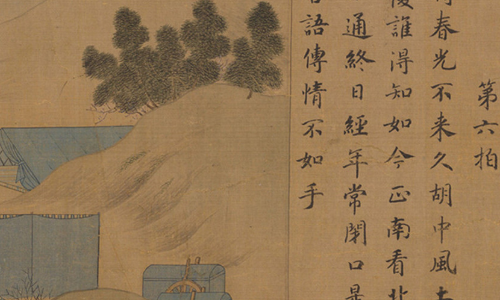 第六拍
春光不来久胡中風土
復誰得知如今正南看北
通終日經年常閉口是
語傳情不如手